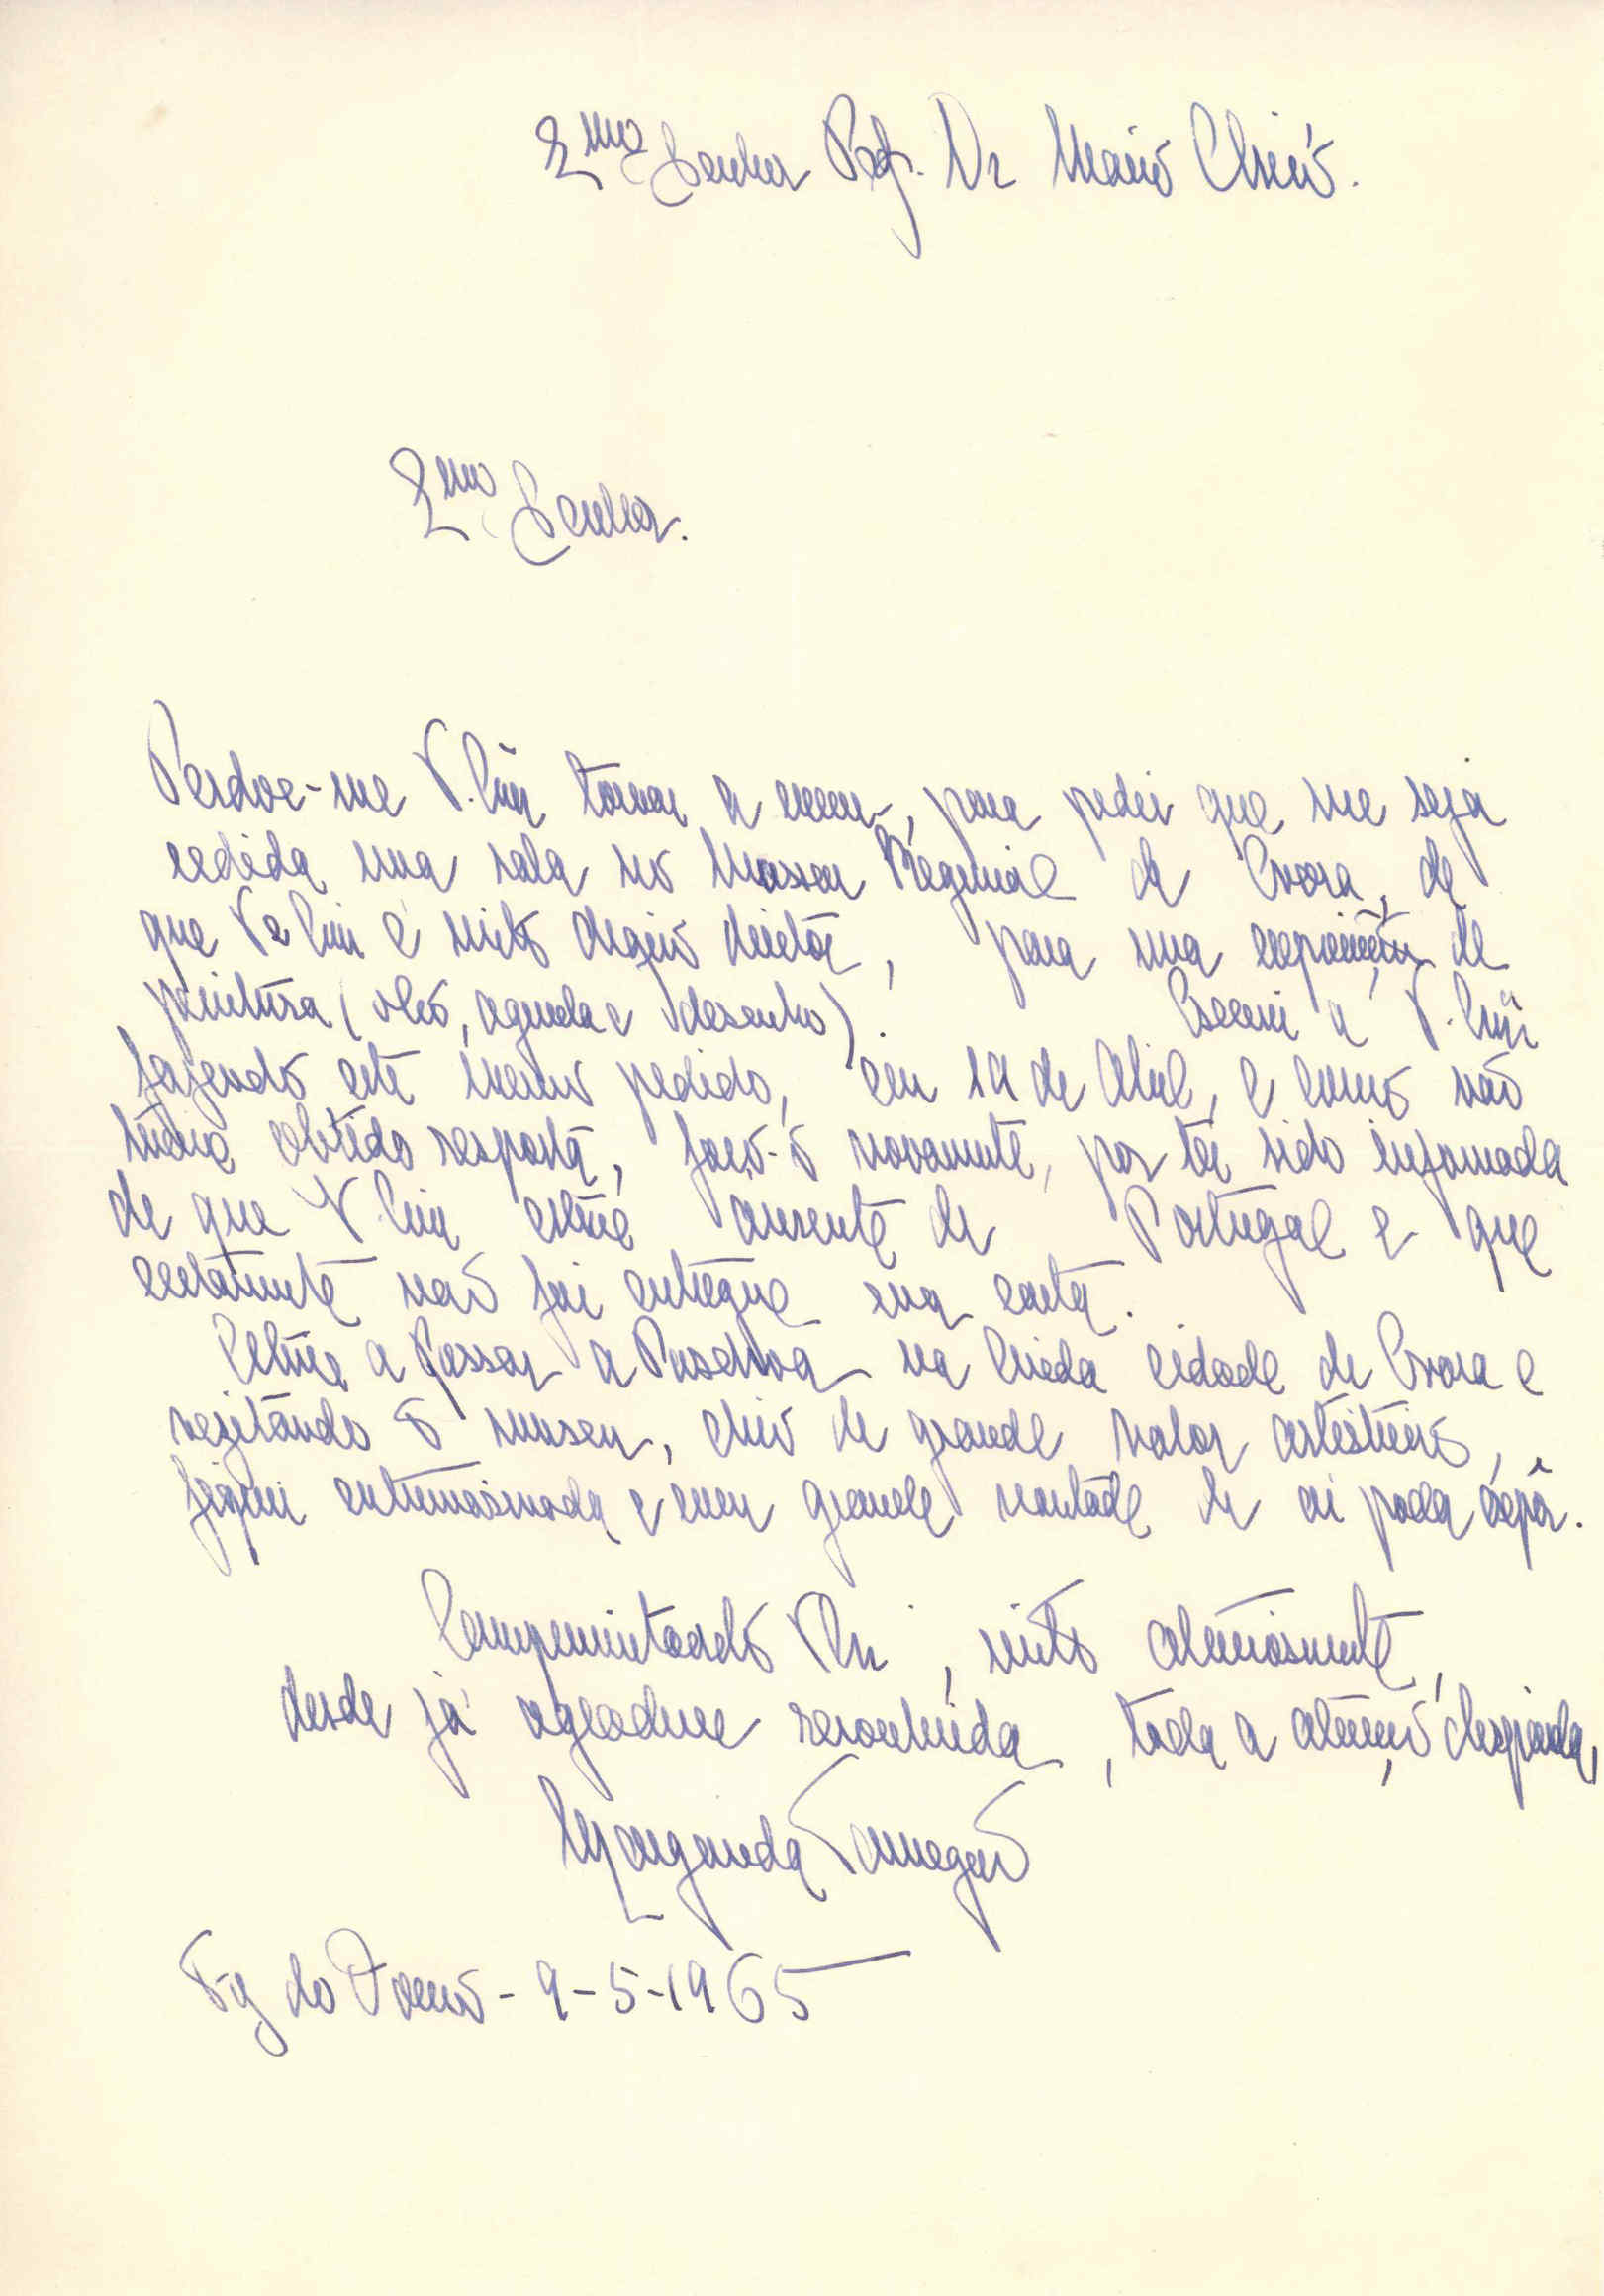 Exmo Senhor Prof. Dr Mário Chicó.
Exmo Senhor.
Perdoe-me V. Ex.cia tornar a escrever, para pedir que me seja
cedida uma sala no Museu Regional de Évora, de
que V. Ex.cia é muito digno director, para uma exposição de
pintura (oleo, aguarela e desenho). Escrevi a V. Ex.cia
fazendo este mesmo pedido, em 19 de Abril, e como não
tivesse obtido resposta, faço-o novamente, por ter sido informada
de que V. Ex.cia esteve ausente de Portugal e que
certamente não foi entregue sua carta.
Estive a passar a Paschoa na linda cidade de Évora e
visitando o museu, cheio de grande valor artistico,
fiquei entusiasmada e com grande vontade de ai poder expôr.
Comprimentando V. Ex.cia, muito atenciosamente,
desde já agradece reconhecida, toda a atenção dispensada,
Margarida Tamegão
Fig do Foz - 9-5-1965